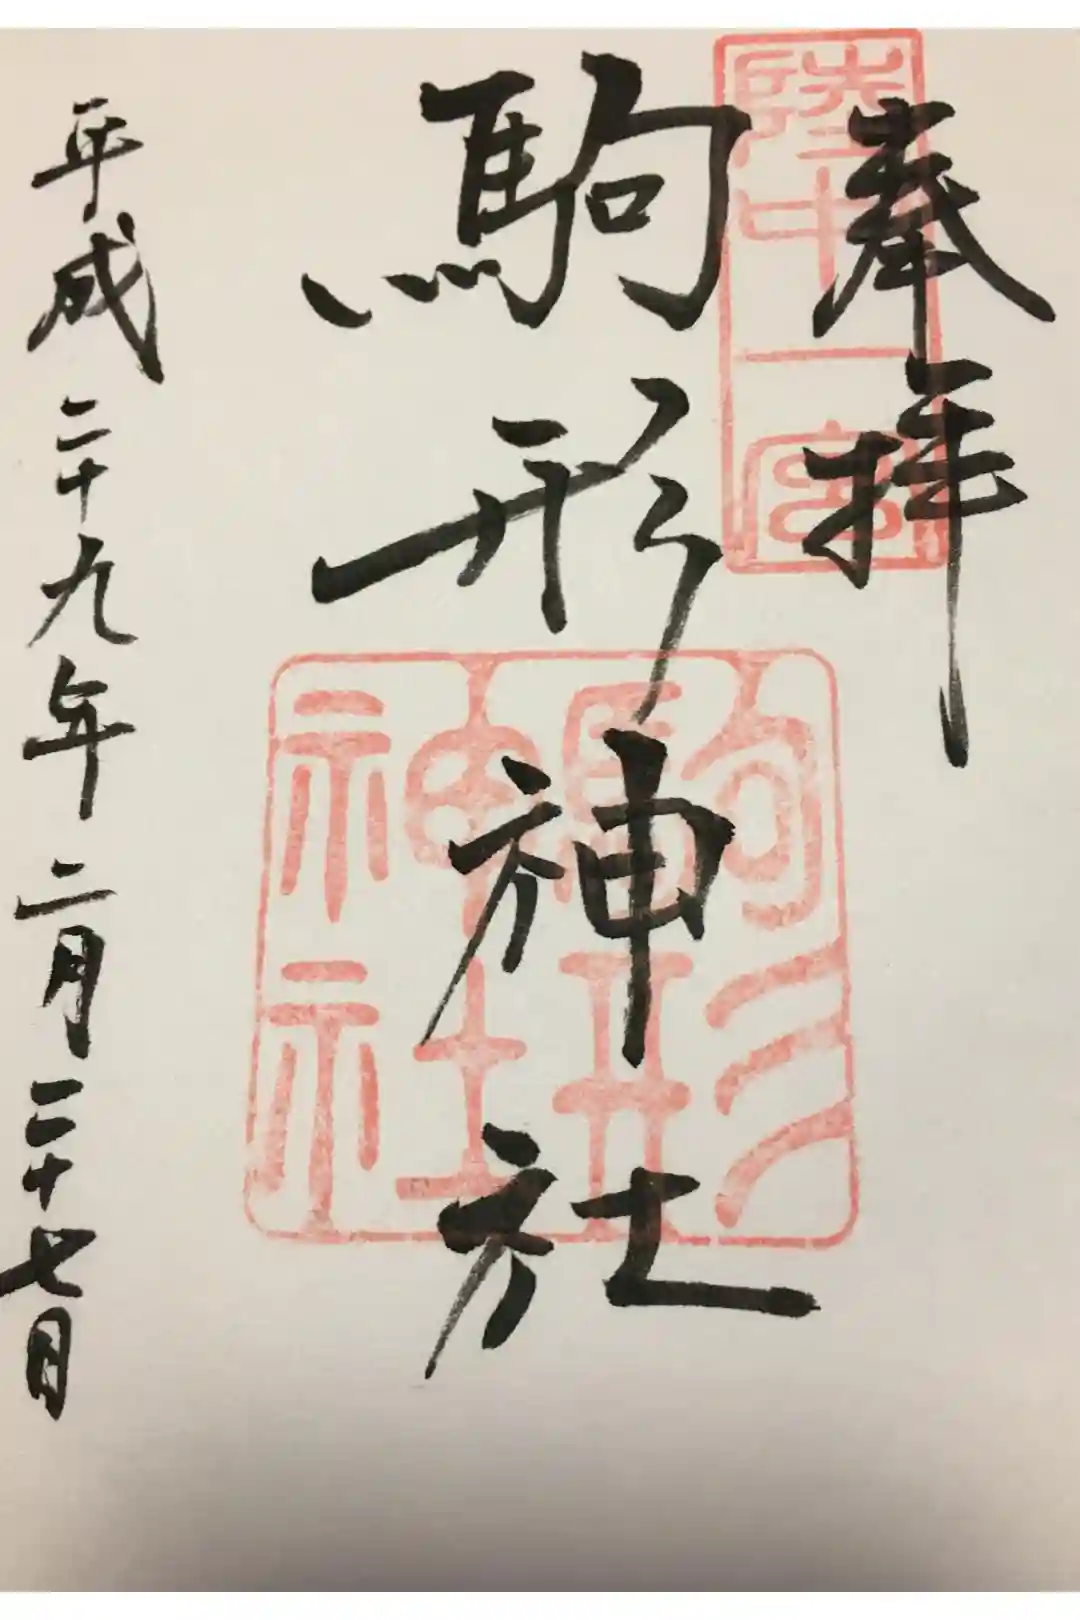 奉拝
陸中一宮
駒形神社
駒形神社
平成二十九年二月二十七日